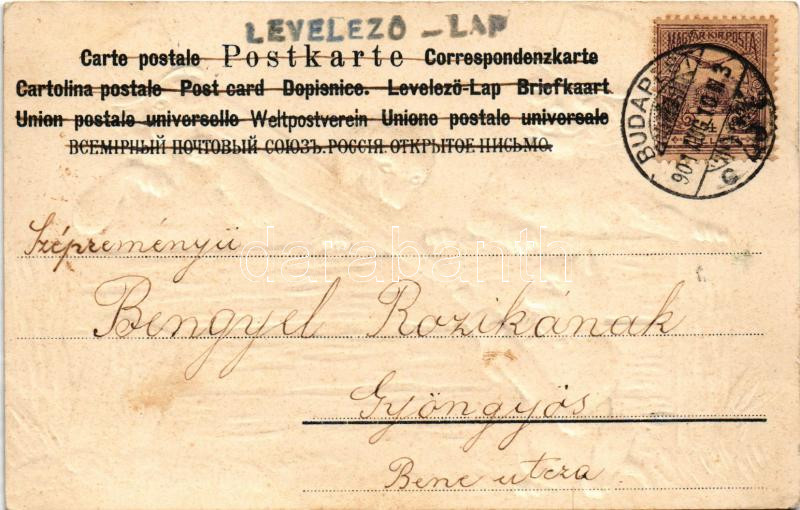 LEVELEZŐ - LAP
Carte postale Postkarte Correspondenzkarte
Cartolina postale Post card Dopisnice. Levelező-Lap Briefkaart
Union postale universelle Weltpostverein Unione postale universale
ВСЕМІРНЫЙ ПОЧТОВЫЙ СОЮЗЪ. РОССІЯ. ОТКРЫТОЕ ПИСЬМО.
MAGYAR KIR. POSTA
BUDAPEST
Szépreményü
darabanth
Bengyel Rozikának
Gyöngyös
Bene utcza